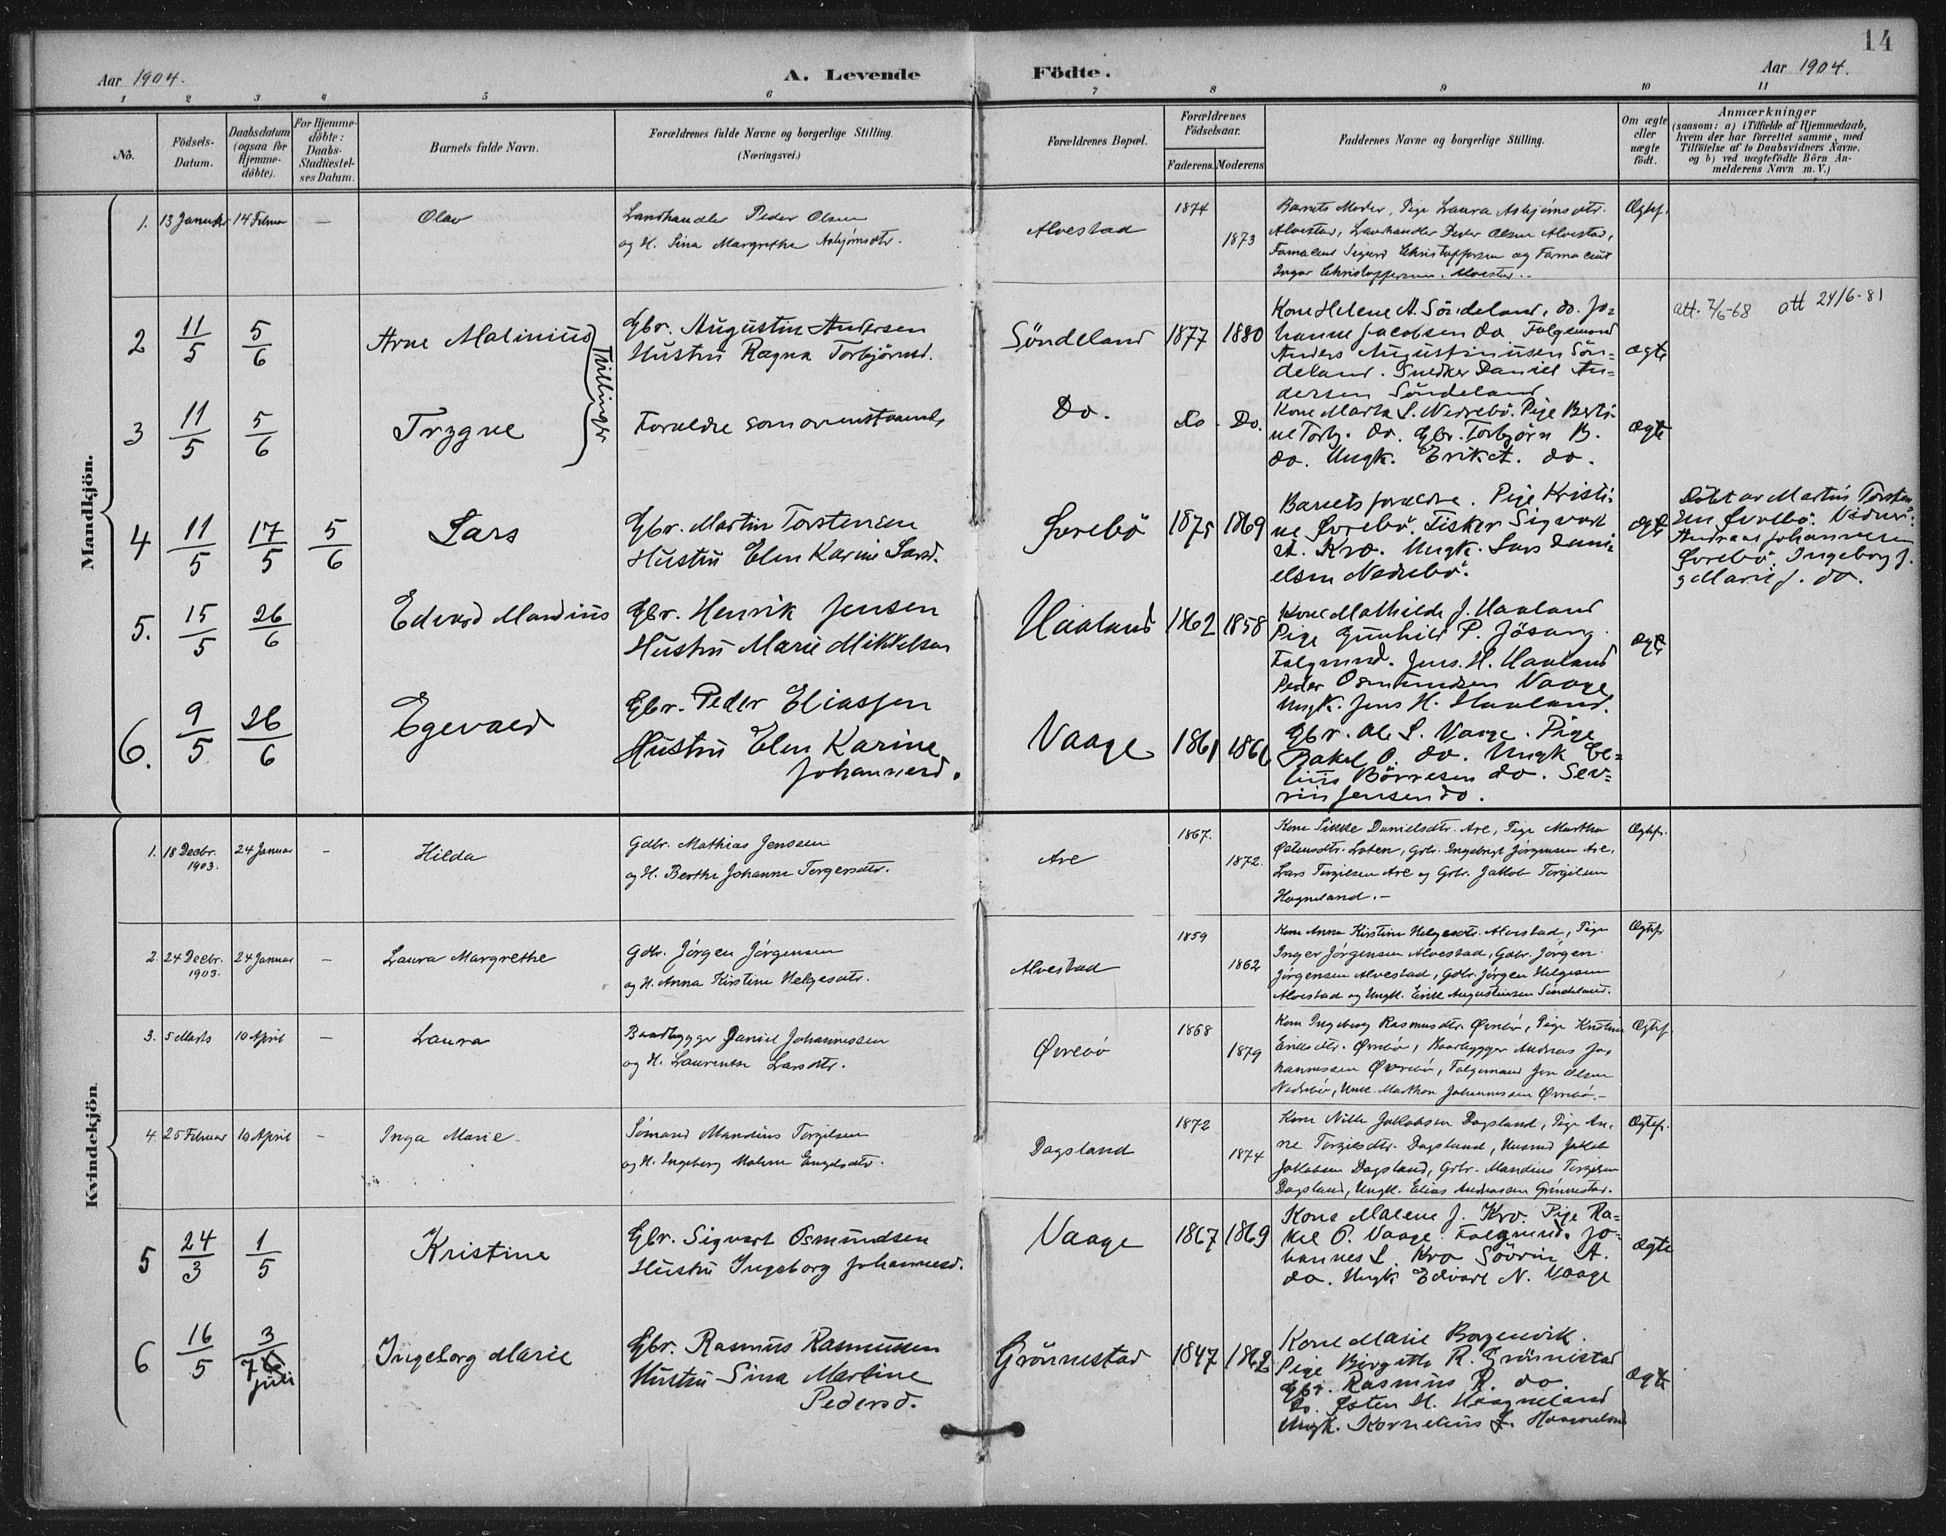 14
Aar 1904.
A. Levende
Födte.
Aar 1904.
1 2 3 4 5 6 7 8 9 10 11
No.
Födsels-Datum.
Daabsdatum (ogsaa for Hjemme-döbte).
For Hjemme-döbte: Daabs-Stadfæstel-ses Datum.
Barnets fulde Navn.
Forældrenes fulde Navne og borgerlige Stilling.
(Næringsvei.)
Forældrenes Bopæl.
Forældrenes Födselsaar.
Faderens. Moderens.
Faddernes Navne og borgerlige Stilling.
Om ægte eller uægte födt.
Anmærkninger
(saasom: a) i Tilfælde af Hjemmedaab,
hvem der har forrettet samme, med
Tilföielse af to Daabsvidners Navne,
og b) ved uægtefödte Börn An-
melderens Navn m. V.)
Mandkjön.
1. 13 Januar 14 Februar — Olav
Landhandler Peder Olsen
og H. Sina Margrethe Asbjørnsdtr.
Alvestad 1874 1873
Barnets Moder, Pige Laura Asbjørnsdtr.
Alvestad, Landhandler Peder Olsen Alvestad,
Farmaceut Sigurd Christophersen og Farmaceut
Ingvar Christophersen, Alvestad.
Ægtef.
2 11/5 5/6 Arne Malinius
Tvillinger
Gbr. Augustin Andersen
Hustru Ragna Torbjörnsd.
Söndeland 1877 1880
Kone Helene A. Söndeland, do. Jo-
hanne Jacobsen do. Folgemand
Anders Augustinusen Sön-
deland. Snedker Daniel An-
dersen Söndeland
ægte
att. 7/6-68 att 24/6-81
3 11/5 5/6 Trygve
Foreldre som ovenstaaende
Do. do Do.
Kone Marta S. Nedrebö. Pige Berti-
ne Torb. do. Gbr. Torbjörn B.
do. Ungk. Erik A. do.
ægte
4 11/5 17/5 5/6 Lars
Gbr. Martin Torstensen
Hustru Elen Karine Larsd.
Övrebö 1875 1869
Barnets foreldre. Pige Kristi-
ne Övrebö. Fisker Sigvart
A. Kro. Ungk. Lars Dani-
elsen Nedrebö.
ægte
Döbt av Martin Torsten-
sen Övrebö. Vidner:
Andreas Johannesen
Övrebö. Ingeborg J.
g Marie J. do.
5. 15/5 26/6 Edvard Mandius
Gbr. Henrik Jensen
Hustru Marie Mikkelsen
Haaland 1862 1858
Kone Mathilde J. Haaland
Pige Gunhild P. Jösang.
Folgmnd. Jens. H. Haaland
Peder Osmundsen Vaage
Ungk. Jens H. Haaland.
ægte
6. 9/5 26/6 Egevald
Gbr. Peder Eliassen
Hustru Elen Karine
Johannesd.
Vaage 1861 1866
Gbr. Ole S. Vaage. Pige
Rakel O. do. Ungk El-
lius Börresen do. Sev-
rin Jensen do.
Kvindekjön.
1. 18 Decbr. 1903. 24 Januar — Hilda
Gdbr. Mathias Jensen
og H. Berthe Johanne Torgersdtr.
Are 1867. 1872.
Kone Sikke Danielsdtr. Are, Pige Martha
Østensdtr. Loten, Grbr. Ingebrigt Jørgensen Are,
Lars Torgilsen Are og Grbr. Jakob Torgilsen
Hogneland.—
Ægtef.
2. 24 Decbr. 1903. 24 Januar — Laura Margrethe
Gdbr. Jörgen Jörgensen
og H. Anna Kirstine Helgesdtr.
Alvestad 1859 1862
Kone Anna Kirstine Helgesdtr. Alvestad, Pige
Inger Jörgensen Alvestad, Gdbr. Jörgen
Jörgensen Alvestad, Gdbr. Jörgen Helgesen
Alvestad og Ungk. Erik Augustinsen Söndeland.
Ægtef.
3. 5 Marts 10 April — Laura
Baadbygger Daniel Johannessen
og H. Laurentse Larsdtr.
Øvrebø 1868 1879
Kone Ingeborg Rasmusdtr. Øvrebø, Pige Kristine
Eriksdtr. Øvrebø, Baadbygger Andreas Jo-
hannessen Øvrebø, Folgemand Jon Olsen
Nedrebø, Ungk. Marthon Johannessen Øvrebø.—
Ægtef.
4. 25 Februar 10 April — Inga Marie
Sømand Mandius Torgilsen
og H. Ingeborg Malene Engelsdtr.
Dagsland 1872 1874
Kone Nille Jakobsen Dagsland, Pige An-
ne Torgilsdtr. Dagsland, Husmd Jakob
Jakobsen Dagsland, Grbr. Mandius Torgilsen
Dagsland, Ungk. Elias Andreassen Grönnestad.
Ægtef.
5 24/3 1/5 Kristine
Gbr. Sigvart Osmundsen
Hustru Ingeborg Johannesd.
Vaage 1867 1869
Kone Malene J. Kro. Pige Ra-
kel P. Vaage. Folgmnd. Jo-
hannes L. Kro Sövrin A.
do. Ungk. Edvart N. Vaage
ægte
6 16/5 3/7 juli Ingeborg Marie
Gbr. Rasmus Rasmussen
Hustru Sina Martine
Pedersd.
Grönnestad 1847 1862
Kone Marie Borgenvik.
Pige Birgitte R. Grönnestad
Gbr. Rasmus R. do.
Do. Østen H. Hogneland
Ungk. Kornelius
ægte